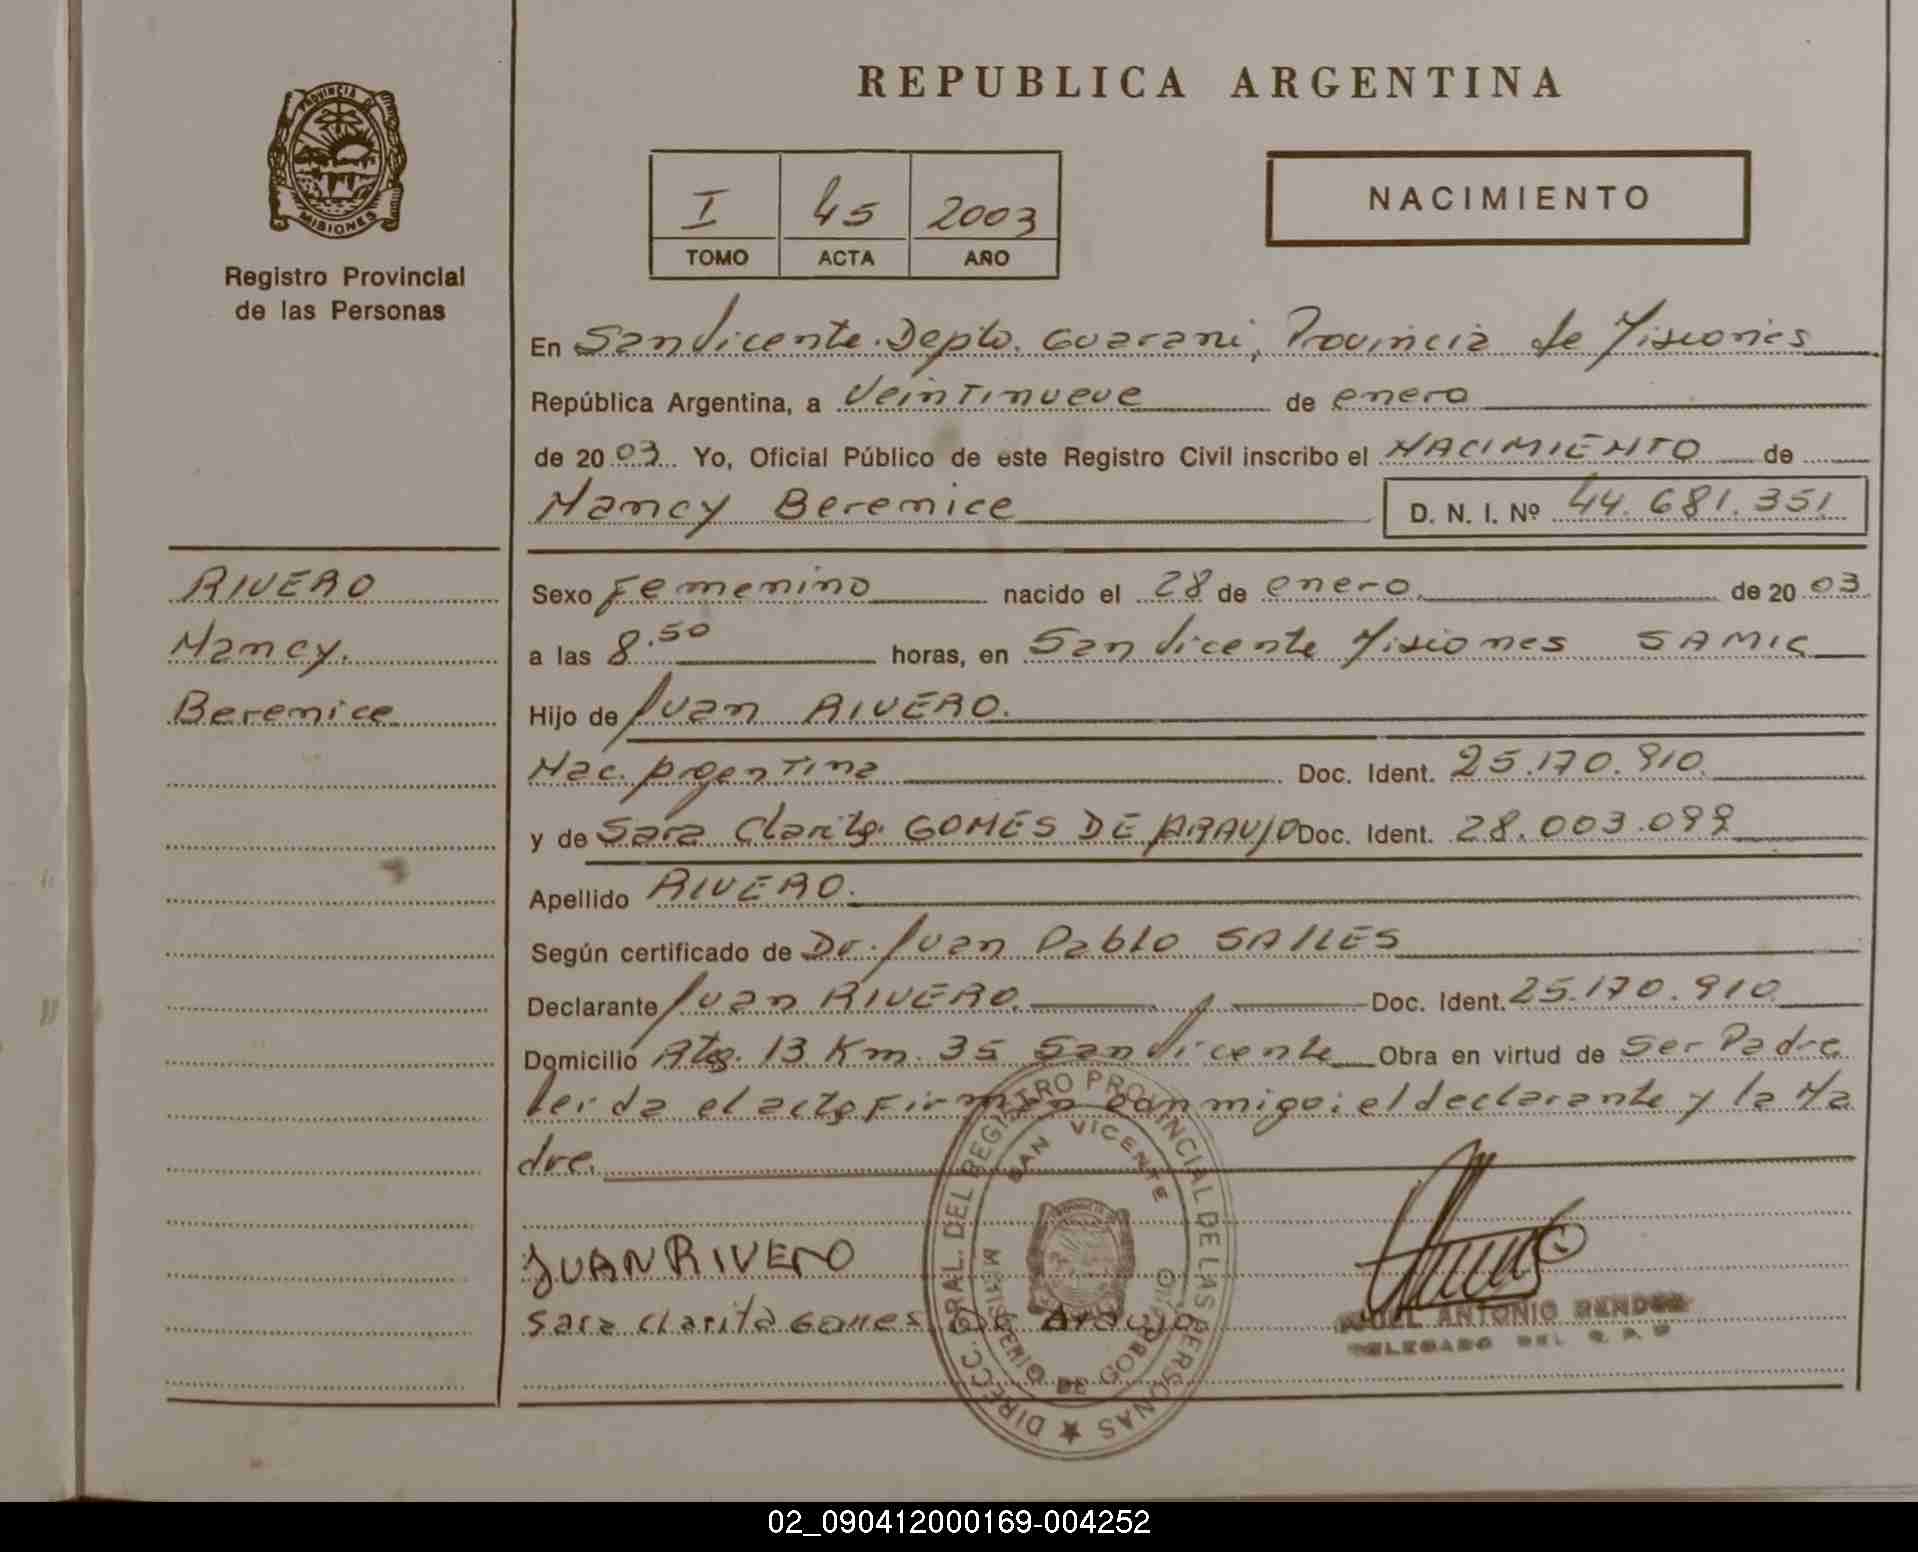 REPUBLICA ARGENTINA
PROVINCIA DE
MISIONES
Registro Provincial
de las Personas
I 45 2003
TOMO ACTA AÑO
NACIMIENTO
En San Vicente. Depto. Guarani, Provincia de Misiones
República Argentina, a Veintinueve de enero
de 2003 Yo, Oficial Público de este Registro Civil inscribo el NACIMIENTO de
Nancy Berenice D. N. I. Nº 44.681.351
RIVERO
Nancy.
Berenice
Sexo Femenino nacido el 28 de enero. de 2003
a las 8.50 horas, en San Vicente Misiones SAMIC
Hijo de Juan RIVERO.
Nac. Argentina Doc. Ident. 25.170.910
y de Sara Clarita GOMES DE ARAUJO Doc. Ident. 28.003.099
Apellido RIVERO.
Según certificado de Dr. Juan Pablo SALLES
Declarante Juan RIVERO. Doc. Ident. 25.170.910
Domicilio Rta. 13 Km. 35 San Vicente Obra en virtud de Ser Padre
leida el acta firman conmigo: el declarante y la Ma
dre.
JUAN RIVERO
Sara Clarita Gomes De Araujo
DIRECC. GRAL. DEL REGISTRO PROVINCIAL DE LAS PERSONAS
SAN VICENTE
MINISTERIO DE GOBIERNO
ANTONIO
DELEGADO DEL R. P. P.
02_090412000169-004252